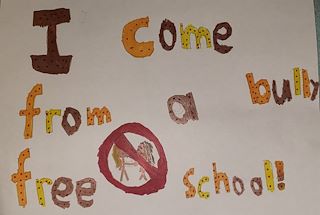 I come
from a bully
free school!